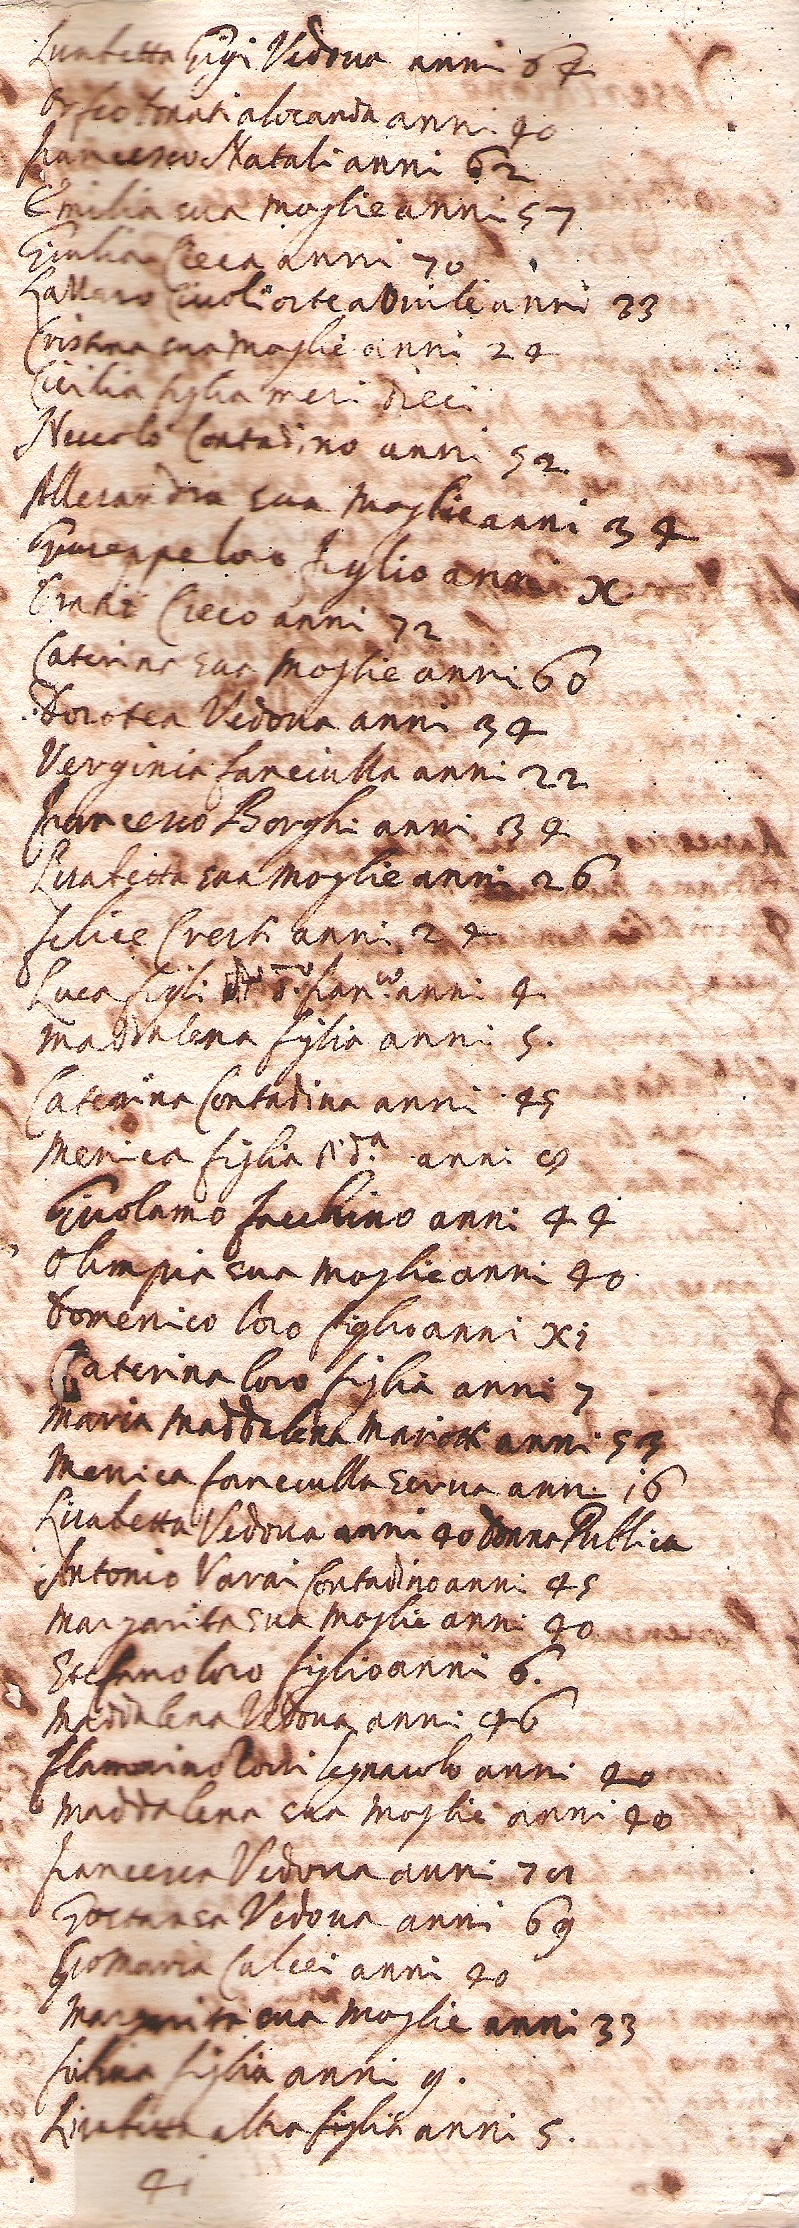 Lisabetta Gigi Vedova anni 64
Orfeo Donati alocanda anni 40
francesco Natali anni 62
Emilia sua moglie anni 57
Giulia Cieca anni 70
Lazzaro Civoli anni 33
Cristina sua moglie anni 24
Cicilia figlia mesi dieci
Niccolò Contadino anni 52
Allesandra sua moglie anni 34
Giuseppe loro figlio anni x
Cieco anni 72
Caterina sua moglie anni 60
Dorotea Vedova anni 34
Verginia fanciulla anni 22
francesco Borghi anni 34
Lisabetta sua moglie anni 26
felice Cresti anni 24
Luca figli d.o fran.co anni 4
maddalena figlia anni 5.
Caterina Contadina anni 45
Menica figlia d.a anni
Girolamo facchino anni 44
Olimpia sua moglie anni 40
Domenico loro figlio anni xi
Caterina loro figlia anni 7
Maria Maddalena Mariotti anni 53
Menica fanciulla serva anni 16
Lisabetta Vedova anni 40 donna Publica
Antonio Varai Contadino anni 45
Margarita sua moglie anni 40
Stefano loro figlio anni 6.
Maddalena Vedova anni 46
flamminio legnaiolo anni 40
Maddalena sua moglie anni 40
francesca Vedova anni
Gostansa Vedova anni 69
Gio Maria Calcei anni 40
Margarita sua moglie anni 33
figlia anni 9.
Lisabetta altra figlia anni 5.
41